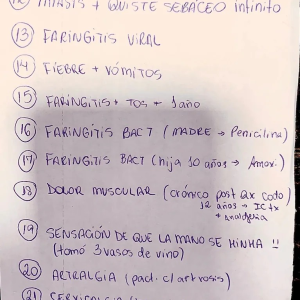 12 MIASIS + QUISTE SEBÁCEO infinito
13 FARINGITIS VIRAL
14 FIEBRE + VÓMITOS
15 FARINGITIS + TOS + 1 año
16 FARINGITIS BACT (MADRE → Penicilina)
17 FARINGITIS BACT (hija 10 años → Amox.)
18 DOLOR MUSCULAR (crónico post qx codo)
12 años → ICTX
+ analgesia
19 SENSACIÓN DE QUE LA MANO SE HINHA !!
(tomó 3 vasos de vino)
20 ARTRALGIA (pad. c/ artrosis)
21 CERVICALGIA